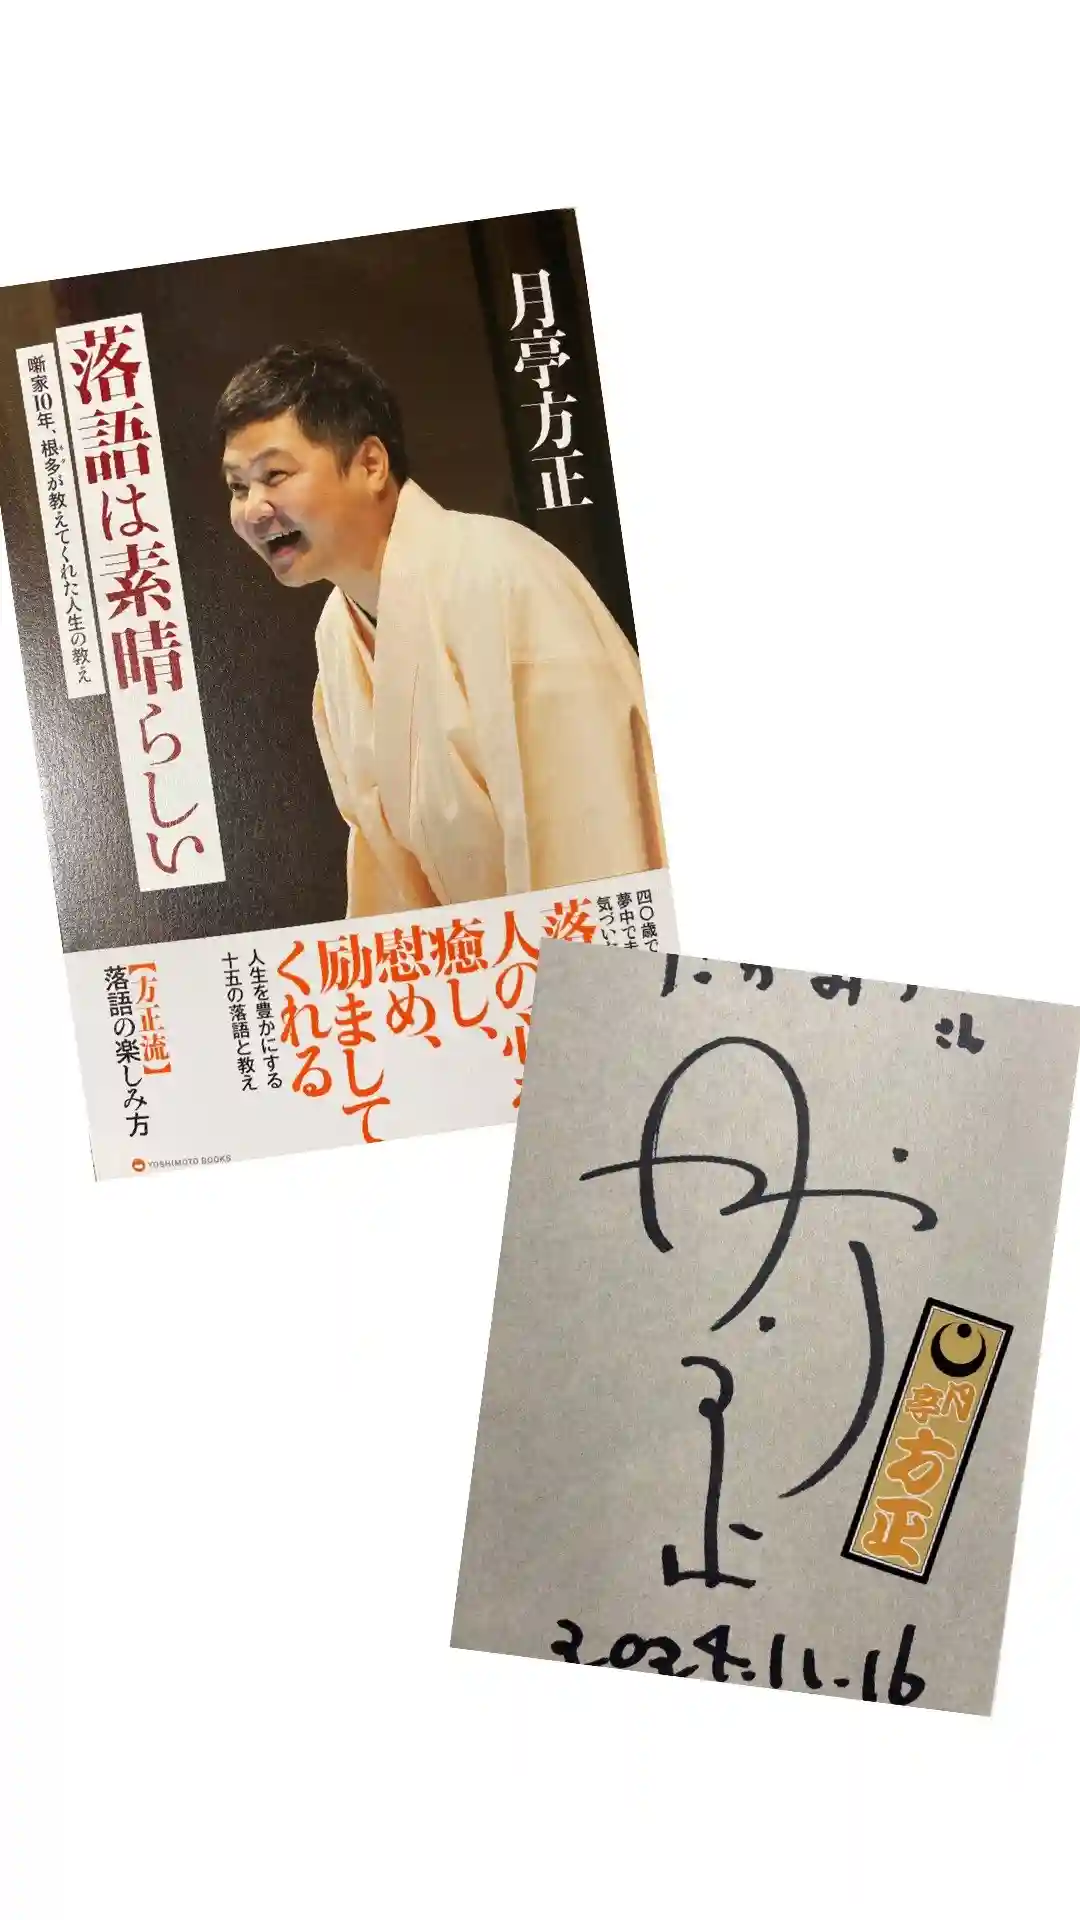 月亭方正
落語は素晴らしい
噺家10年、根多が教えてくれた人生の教え
ネタ
四〇歳で
夢中で
気づい
落
人の心を
癒し、
慰め、
励まして
くれる
人生を豊かにする
十五の落語と教え
【方正流】
落語の楽しみ方
YOSHIMOTO BOOKS
さん
月亭
方正
2024.11.16